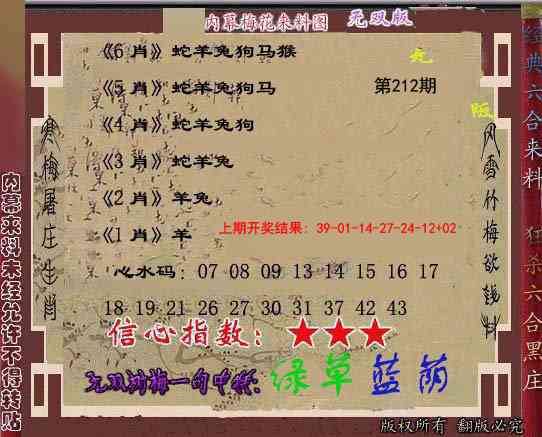 内幕梅花来料图 无双版
《6 肖》蛇羊兔狗马猴
《5 肖》蛇羊兔狗马 第212期
《4 肖》蛇羊兔狗
《3 肖》蛇羊兔
《2 肖》羊兔
《1 肖》羊
上期开奖结果：39-01-14-27-24-12+02
心水码：07 08 09 13 14 15 16 17
18 19 21 26 27 30 31 37 42 43
信心指数：★★★
无双浏梅一句中特：绿草蓝荫
版权所有 翻版必究
寒梅屠庄生肖
风雪竹梅欲钱料
无
版
内幕来料未经允许不得转贴
经典六合来料 狂杀六合黑庄